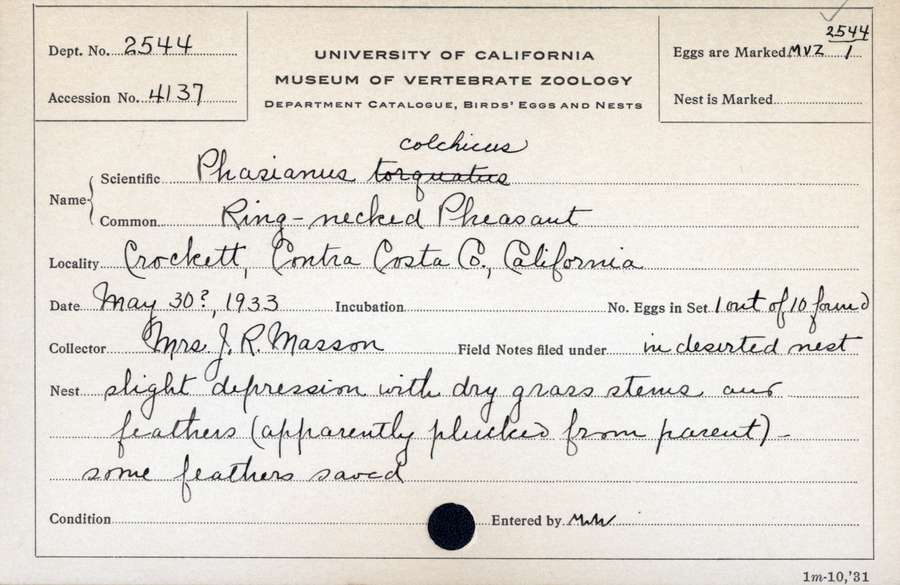 Dept. No. 2544
Accession No. 4137
UNIVERSITY OF CALIFORNIA
MUSEUM OF VERTEBRATE ZOOLOGY
DEPARTMENT CATALOGUE, BIRDS' EGGS AND NESTS
2544
Eggs are Marked MVZ 1
Nest is Marked
colchicus
Name { Scientific Phasianus torquatus
Common Ring-necked Pheasant
Locality Crockett, Contra Costa Co., California
Date May 30?, 1933 Incubation No. Eggs in Set 1 out of 10 found
Collector Mrs. J. R. Masson Field Notes filed under in deserted nest
Nest slight depression with dry grass stems and
feathers (apparently plucked from parent) -
some feathers saved
Condition Entered by
1m-10,'31